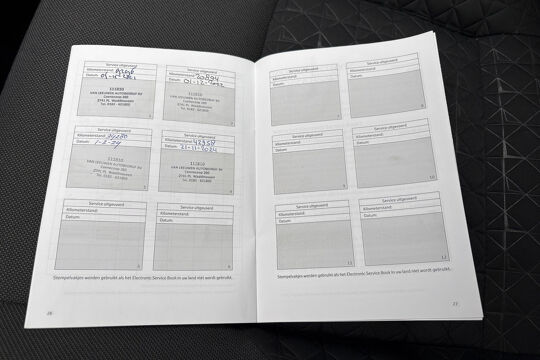 Service uitgevoerd
Kilometerstand:
Datum:
111810
VAN LEEUWEN AUTOBEDRIJF BV
Coenecoop 260
2741 PL Waddinxveen
Tel. 0182 - 621800
1
Service uitgevoerd
Kilometerstand: 20894
Datum: 01-12-2022
111810
VAN LEEUWEN AUTOBEDRIJF BV
Coenecoop 260
2741 PL Waddinxveen
Tel. 0182 - 621800
2
Service uitgevoerd
Kilometerstand:
Datum: 1-2-24
111810
VAN LEEUWEN AUTOBEDRIJF BV
Coenecoop 260
2741 PL Waddinxveen
Tel. 0182 - 621800
3
Service uitgevoerd
Kilometerstand: 42958
Datum: 21-11-2024
111810
VAN LEEUWEN AUTOBEDRIJF BV
Coenecoop 260
2741 PL Waddinxveen
Tel. 0182 - 621800
4
Service uitgevoerd
Kilometerstand:
Datum:
5
Service uitgevoerd
Kilometerstand:
Datum:
6
Stempelvakjes worden gebruikt als het Electronic Service Book in uw land niet wordt gebruikt.
26
Service uitgevoerd
Kilometerstand:
Datum:
7
Service uitgevoerd
Kilometerstand:
Datum:
8
Service uitgevoerd
Kilometerstand:
Datum:
9
Service uitgevoerd
Kilometerstand:
Datum:
10
Service uitgevoerd
Kilometerstand:
Datum:
11
Service uitgevoerd
Kilometerstand:
Datum:
12
Stempelvakjes worden gebruikt als het Electronic Service Book in uw land niet wordt gebruikt.
27